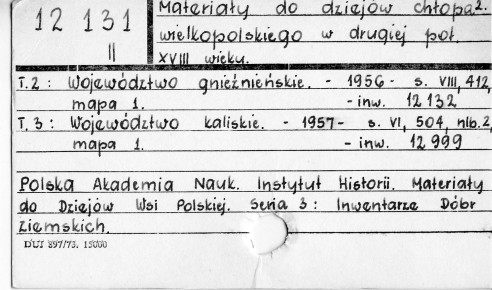 12 131
II
Materiały do dziejów chłopa 2.
wielkopolskiego w drugiej poł.
XVIII wieku.
T. 2: Województwo gnieźnieńskie. - 1956 - s. VIII, 412,
mapa 1. - inw. 12 132
T. 3: Województwo kaliskie. - 1957 - s. VI, 504, nlb. 2,
mapa 1. - inw. 12 999
Polska Akademia Nauk. Instytut Historii. Materiały
do Dziejów Wsi Polskiej. Seria 3: Inwentarze Dóbr
Ziemskich.
DUT 897/73. 15000